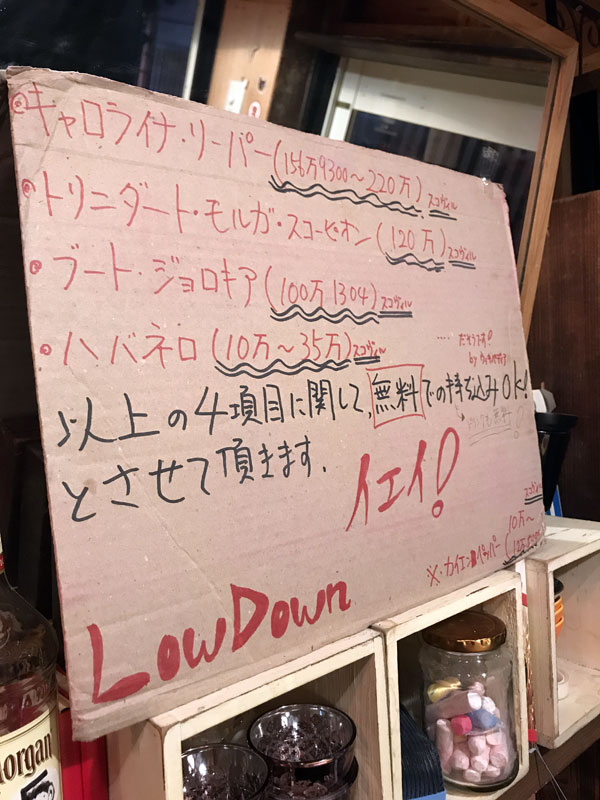 キャロライナ・リーパー(156万9300〜220万)スコヴィル
・トリニダート・モルガ・スコーピオン(120万)スコヴィル
・ブート・ジョロキア(100万1304)スコヴィル
・ハバネロ(10万〜35万)スコヴィル
……だそうです!
by ウィキペディア
以上の4項目に関して、無料での持ち込みOK!
とさせて頂きます.
イエイ!
スコヴィル
10万〜
※・カイエンペッパー
LowDown
organ